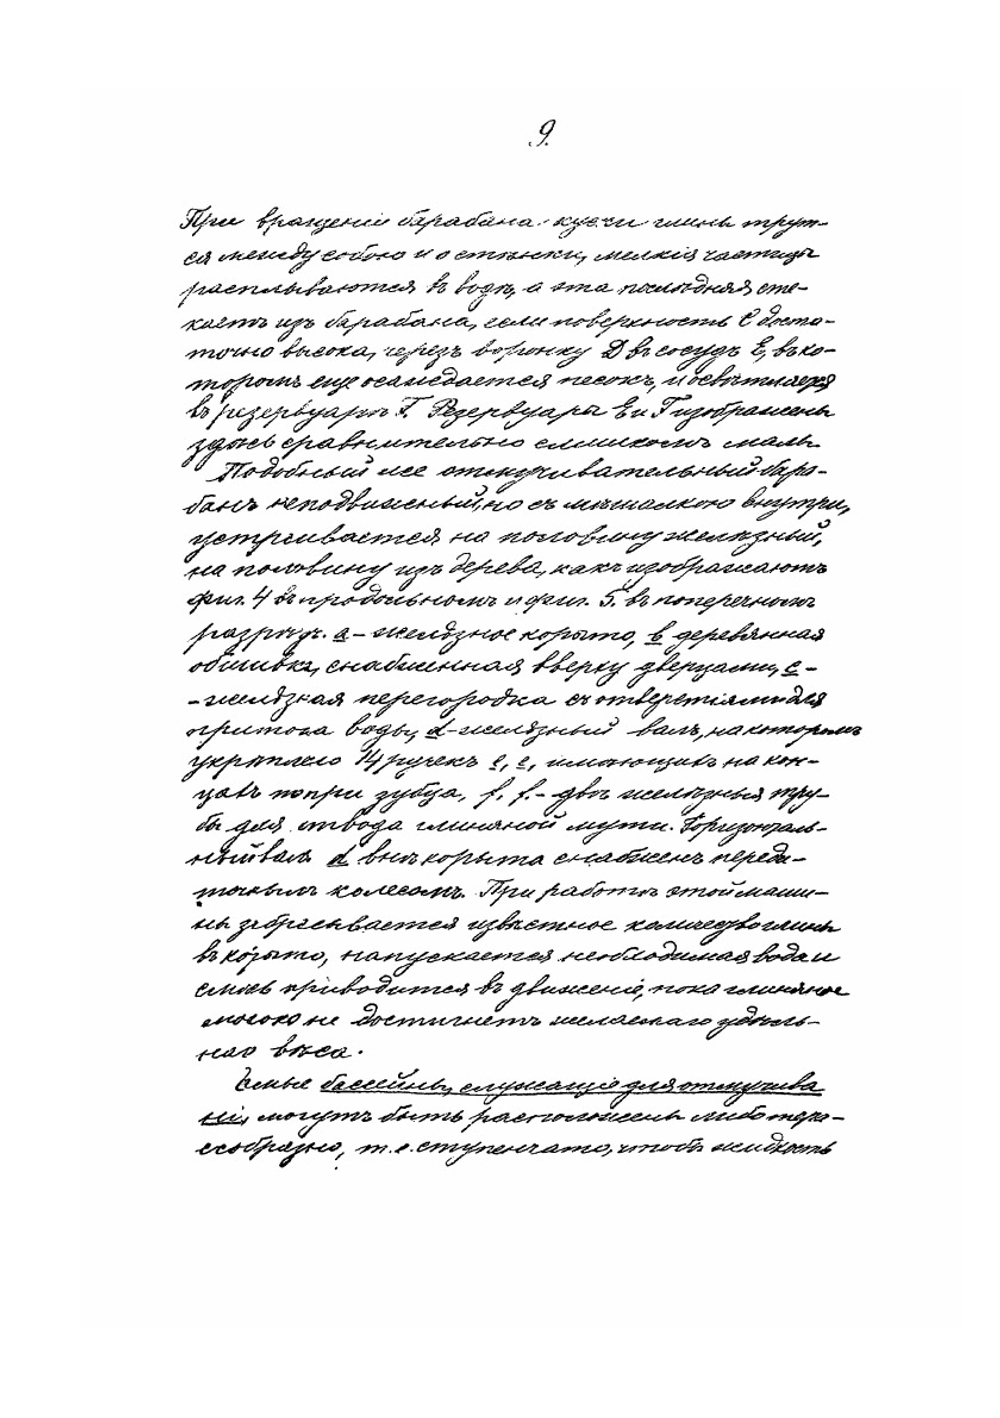 9.
При вращеніи барабана куски глины трут-
ся между собою и о стѣнки, мелкія частицы
расплываются въ водѣ, а эта послѣдняя сте-
каетъ изъ барабана, если поверхность C доста-
точно высока, черезъ воронку D въ сосудъ E, въ ко-
торомъ еще осаждается песокъ, и освѣтляется
въ резервуарѣ F. Резервуары E и F изображены
здѣсь сравнительно слишкомъ малы.
Подобный же отмучивательный бара-
банъ неподвижный, но съ мѣшалкою внутри,
устраивается на половину желѣзный,
на половину изъ дерева, какъ изображаютъ
фиг. 4 въ продольномъ и фиг. 5. въ поперечномъ
разрѣзѣ. a - желѣзное корыто, b деревянная
обшивка, снабженная вверху дверцами, c -
- желѣзная перегородка съ отверстіями для
притока воды, d - желѣзный валъ, на которомъ
укрѣплено 14 ручекъ e, e, имѣющихъ на кон-
цахъ по три зубца, f, f. - двѣ желѣзныя тру-
бы для отвода глиняной мути. Горизонталь-
ный валъ d внѣ корыта снабженъ переда-
точнымъ колесомъ. При работѣ этой маши-
ны забрасывается извѣстное количество глины
въ корыто, напускается необходимая вода и
смѣсь приводится въ движеніе, пока глиняное
молоко не достигнетъ желаемаго удѣль-
наго вѣса.
Самые бассейны, служащіе для отмучива
нія, могутъ быть расположены либо терра-
сообразно, т.е. ступенчато, чтобы жидкость